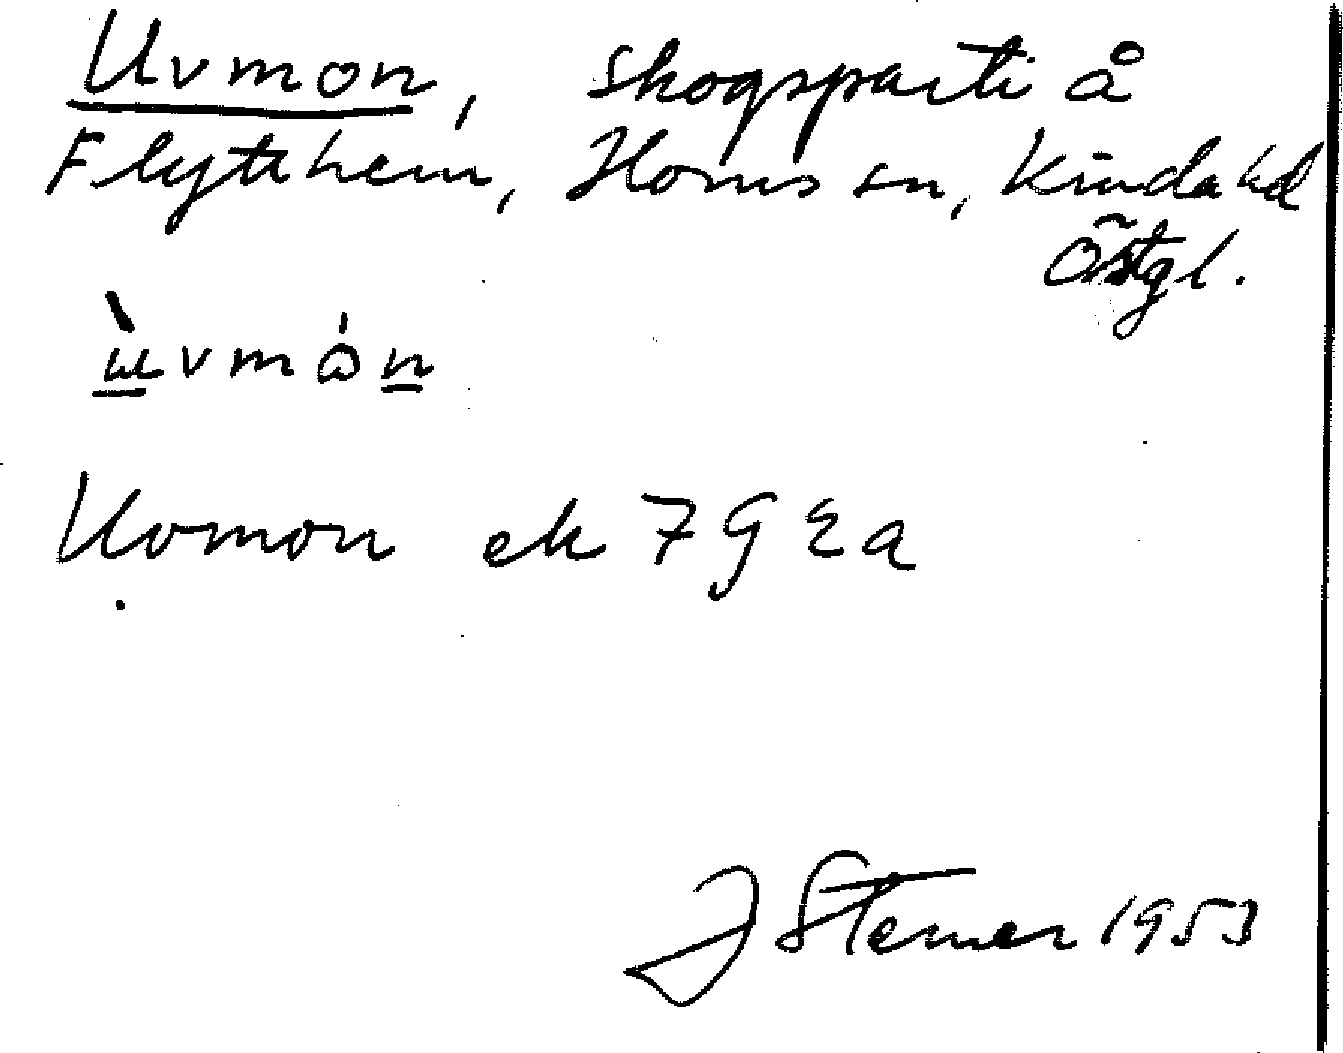 Uvmon, skogsparti å
Flyttehem, Horns sn, Kinda hd
Östgl.
ùvmón
Uvmon ek 7 g Ea
J Stemer 1953